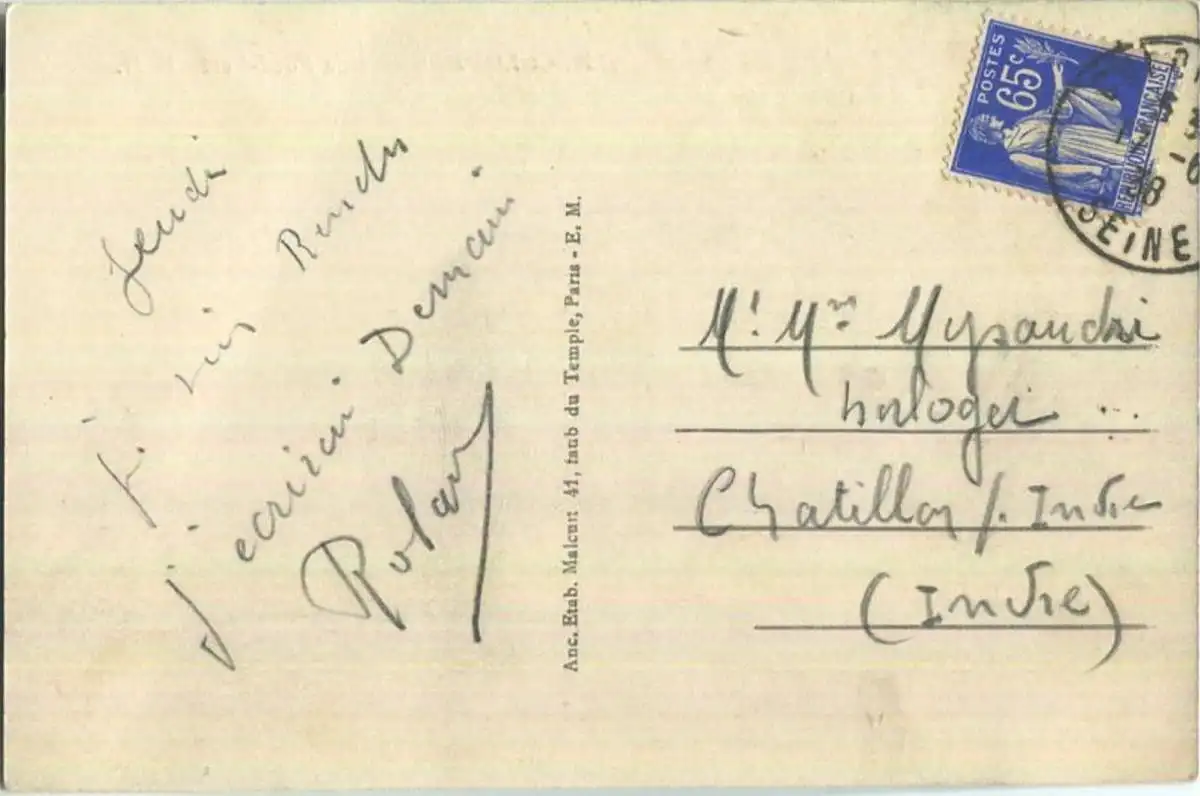 Jeudi
J. suis Rendu
j'ecrirai Demain
Roland
Anc. Etab. Malcuit 41, faub du Temple, Paris - E. M.
POSTES
65c
REPUBLIQUE FRANÇAISE
38
SEINE
Mr Mme
horloger ...
Chatillon s/. Indre
(Indre)